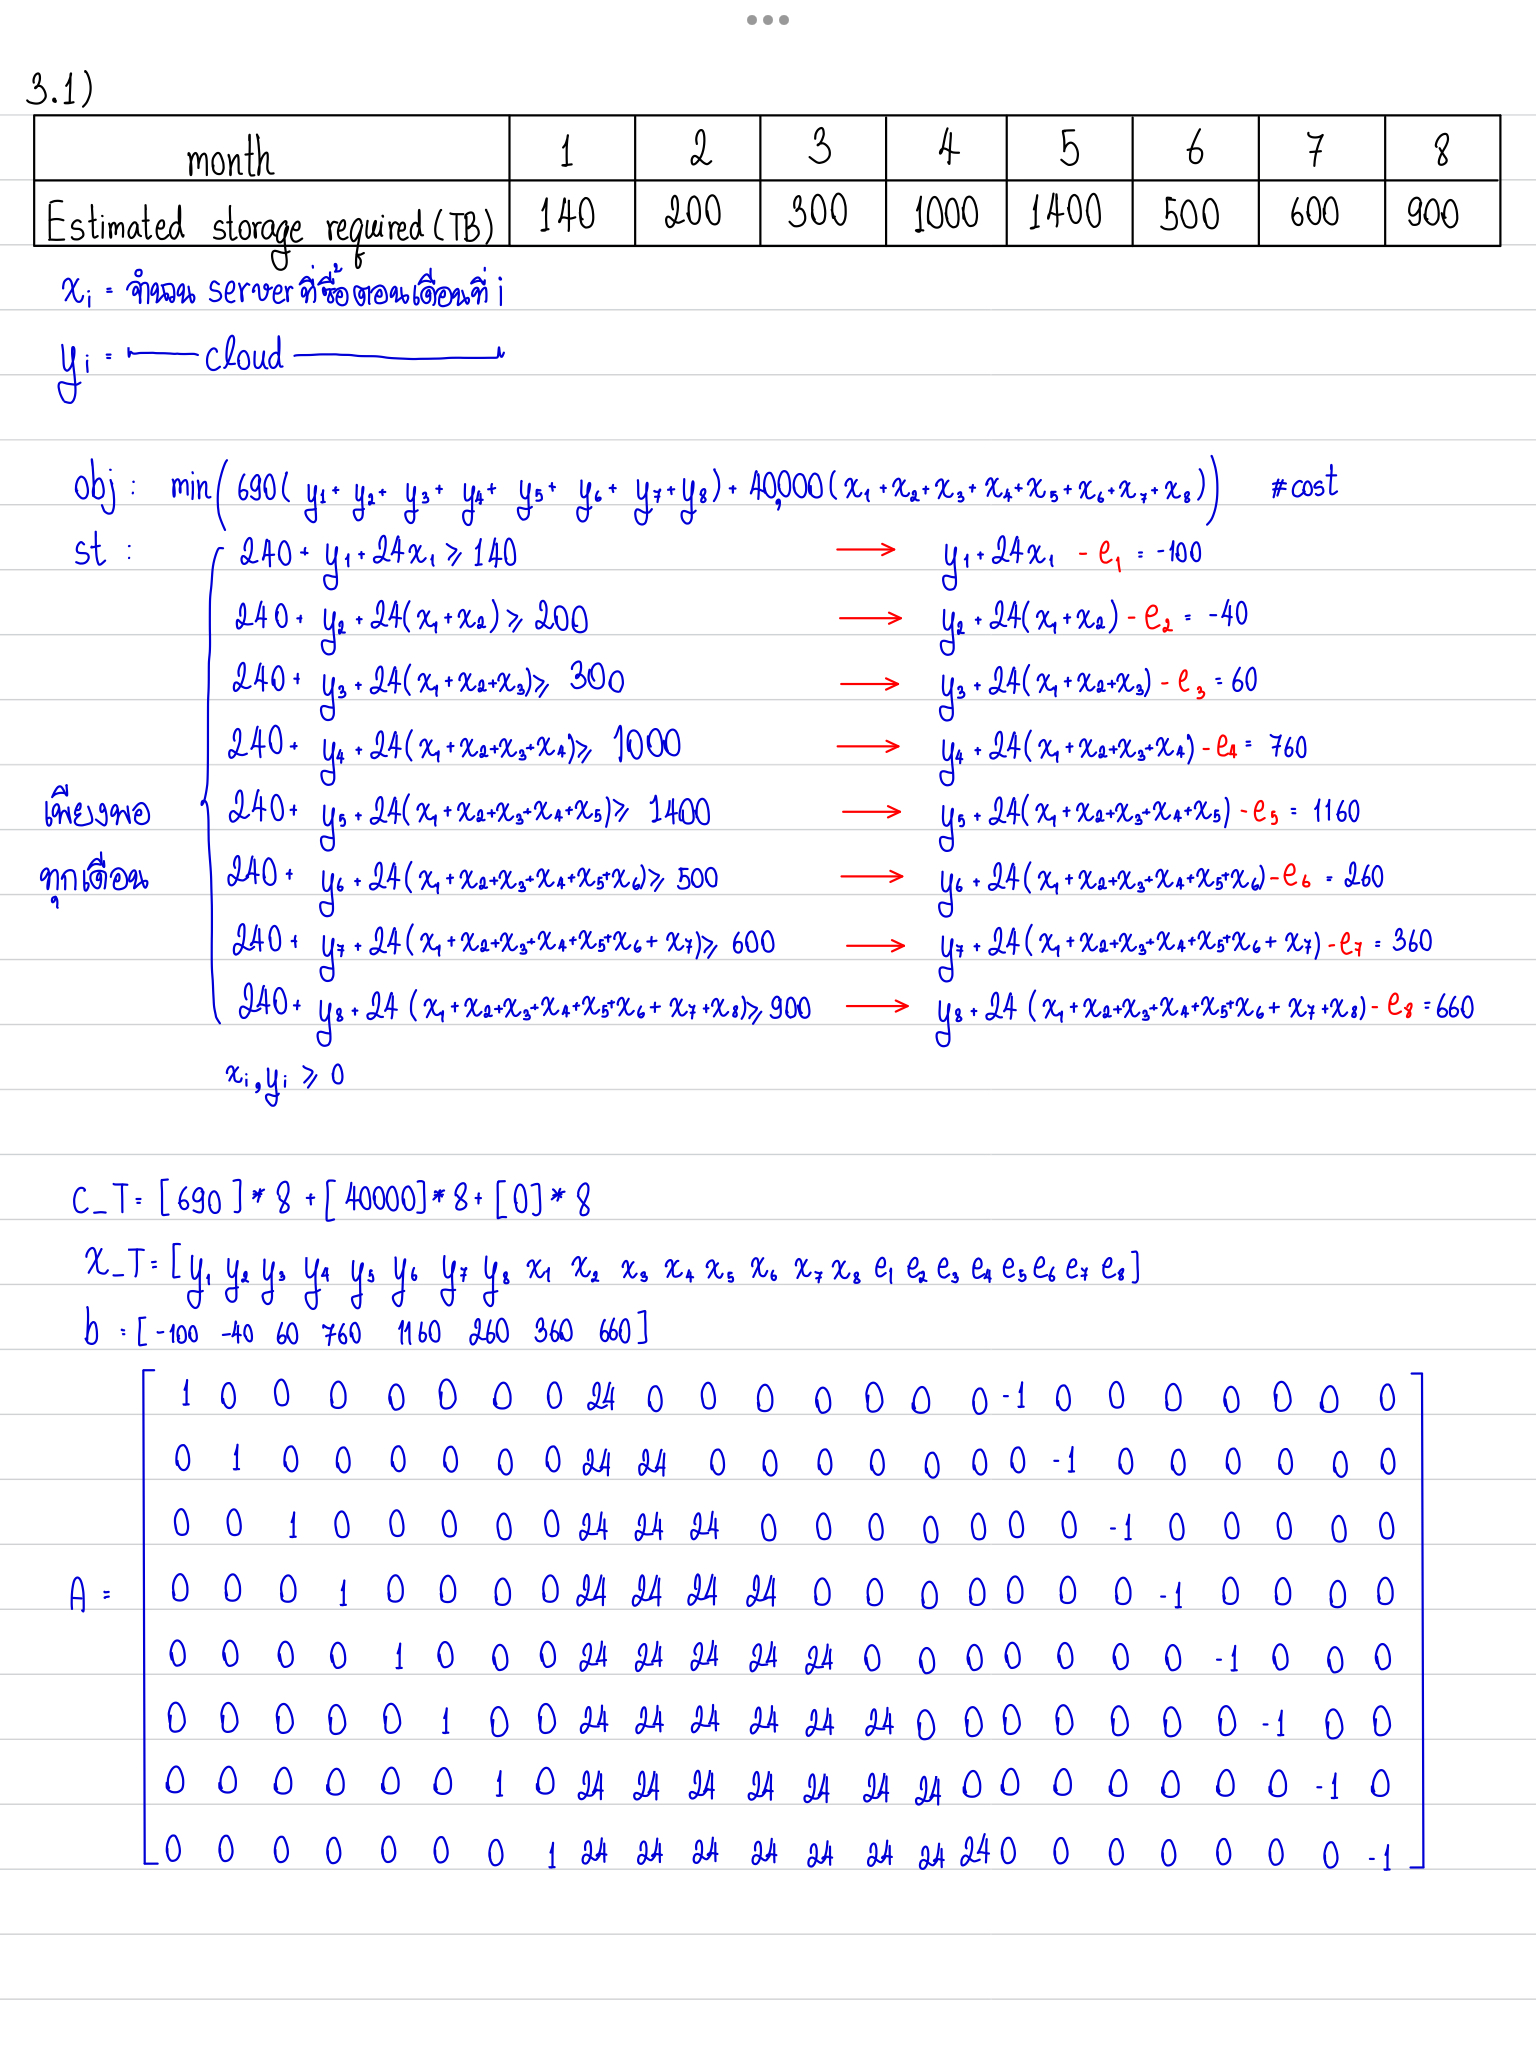 3.1)
month 1 2 3 4 5 6 7 8
Estimated storage required (TB) 140 200 300 1000 1400 500 600 900
x₁ = จำนวน server ที่ซื้อตอนเดือนที่ i
yᵢ = cloud
obj : min(690(y₁+y₂+y₃+y₄+y₅+y₆+y₇+y₈)+40,000(x₁+x₂+x₃+x₄+x₅+x₆+x₇+x₈)) #cost
st :
240+y₁+24x₁ ≥ 140 → y₁+24x₁ -e₁ = -100
240+y₂+24(x₁+x₂) ≥ 200 → y₂+24(x₁+x₂) -e₂ = -40
240+y₃+24(x₁+x₂+x₃) ≥ 300 → y₃+24(x₁+x₂+x₃) -e₃ = 60
240+y₄+24(x₁+x₂+x₃+x₄) ≥ 1000 → y₄+24(x₁+x₂+x₃+x₄) -e₄ = 760
เพียงพอ 240+y₅+24(x₁+x₂+x₃+x₄+x₅) ≥ 1400 → y₅+24(x₁+x₂+x₃+x₄+x₅) -e₅ = 1160
ทุกเดือน 240+y₆+24(x₁+x₂+x₃+x₄+x₅+x₆) ≥ 500 → y₆+24(x₁+x₂+x₃+x₄+x₅+x₆) -e₆ = 260
240+y₇+24(x₁+x₂+x₃+x₄+x₅+x₆+x₇) ≥ 600 → y₇+24(x₁+x₂+x₃+x₄+x₅+x₆+x₇) -e₇ = 360
240+y₈+24(x₁+x₂+x₃+x₄+x₅+x₆+x₇+x₈) ≥ 900 → y₈+24(x₁+x₂+x₃+x₄+x₅+x₆+x₇+x₈) -e₈ = 660
xᵢ,yᵢ ≥ 0
C_T = [690]*8+[40000]*8+[0]*8
X_T = [y₁ y₂ y₃ y₄ y₅ y₆ y₇ y₈ x₁ x₂ x₃ x₄ x₅ x₆ x₇ x₈ e₁ e₂ e₃ e₄ e₅ e₆ e₇ e₈]
b = [-100 -40 60 760 1160 260 360 660]
1 0 0 0 0 0 0 0 24 0 0 0 0 0 0 0 -1 0 0 0 0 0 0 0
0 1 0 0 0 0 0 0 24 24 0 0 0 0 0 0 0 -1 0 0 0 0 0 0
0 0 1 0 0 0 0 0 24 24 24 0 0 0 0 0 0 0 -1 0 0 0 0 0
A = 0 0 0 1 0 0 0 0 24 24 24 24 0 0 0 0 0 0 0 -1 0 0 0 0
0 0 0 0 1 0 0 0 24 24 24 24 24 0 0 0 0 0 0 0 -1 0 0 0
0 0 0 0 0 1 0 0 24 24 24 24 24 24 0 0 0 0 0 0 0 -1 0 0
0 0 0 0 0 0 1 0 24 24 24 24 24 24 24 0 0 0 0 0 0 0 -1 0
0 0 0 0 0 0 0 1 24 24 24 24 24 24 24 24 0 0 0 0 0 0 0 -1